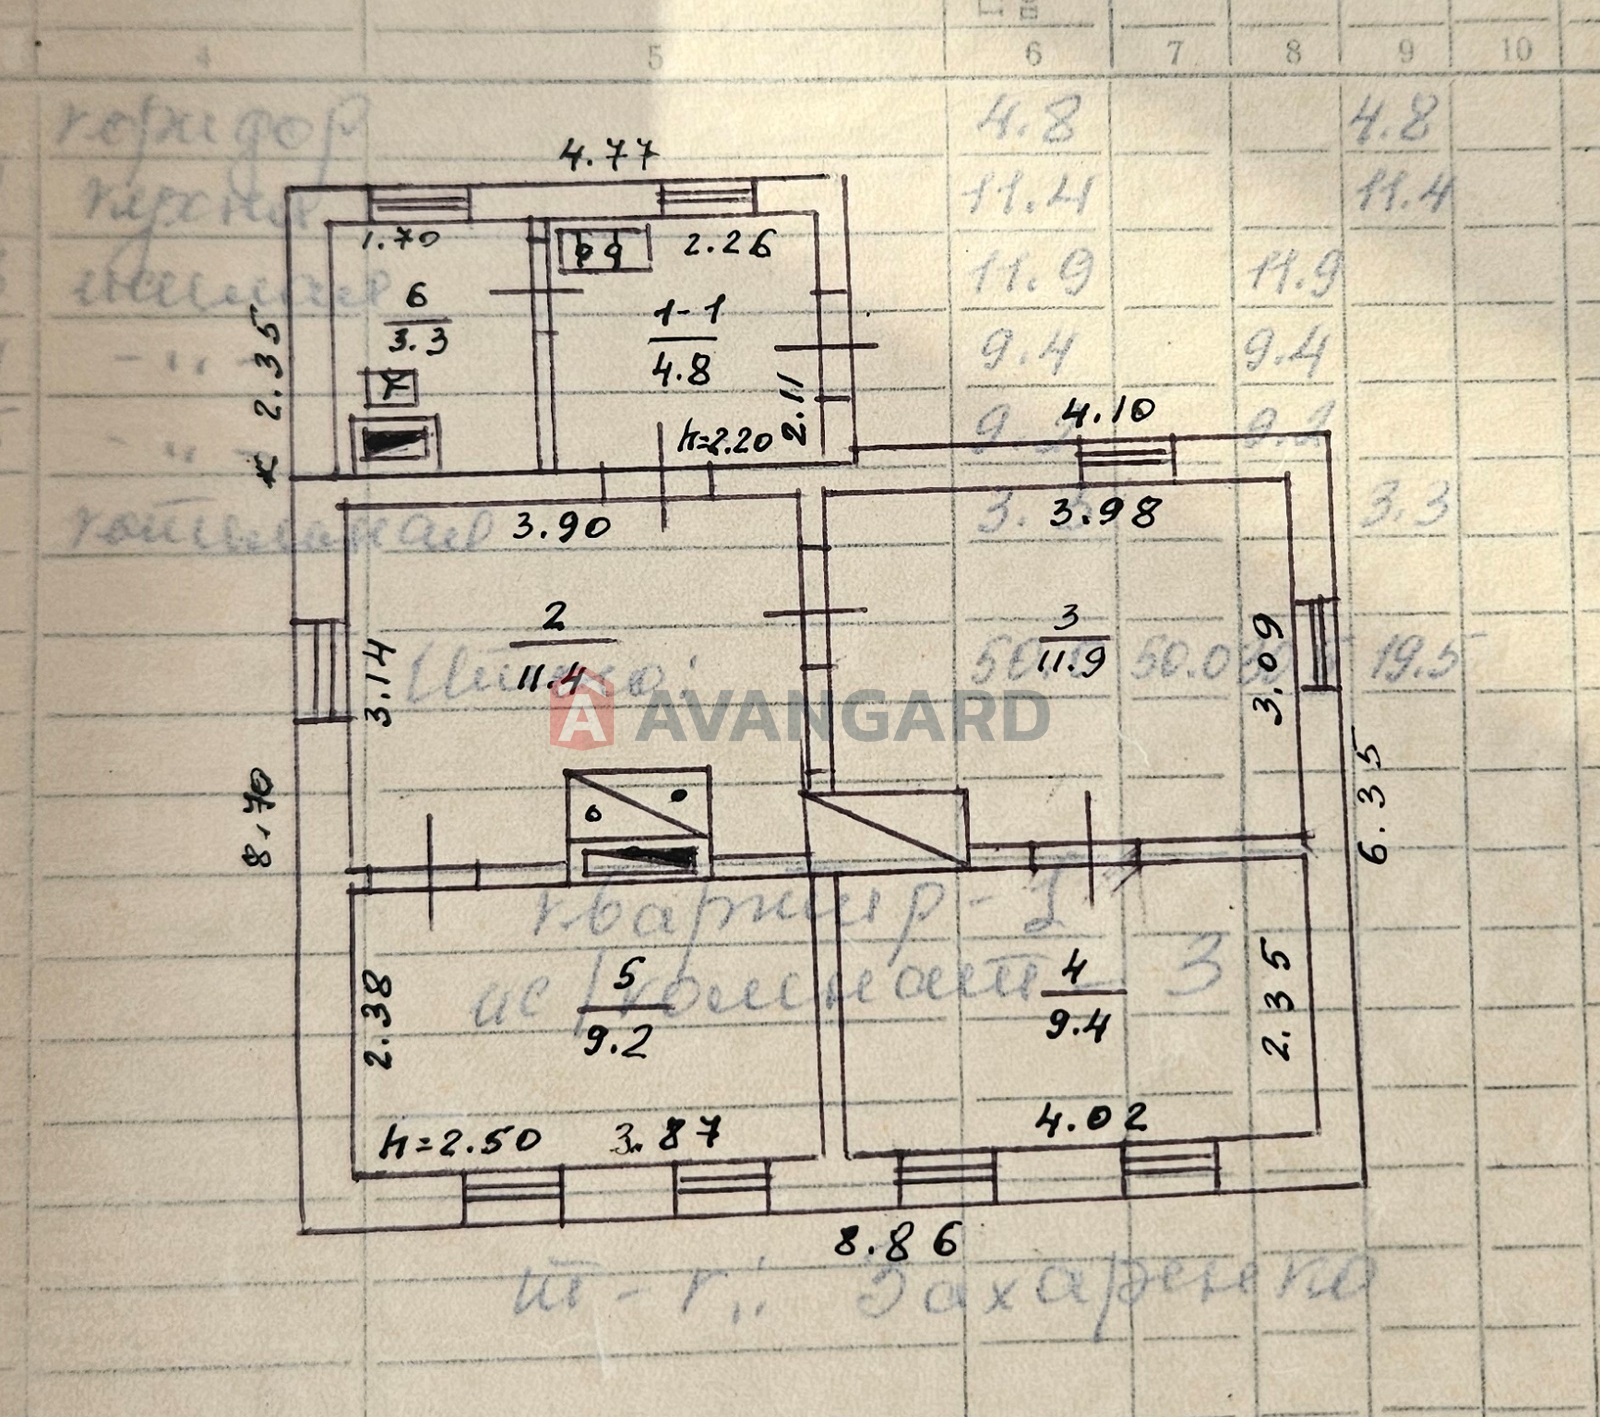 4 5 6 7 8 9 10
коридор 4.8 4.8
кухня 11.4 11.4
жилая 11.9 11.9
-"- 9.4 9.4
-"- 9.2 9.2
3.3
50.0 19.5
квартир - 1
комнат - 3
Захаренко
4.77
1.70
2.26
6
3.3
1-1
4.8
2.35
2.11
h=2.20
4.10
3.90
3.98
2
11.4
3
11.9
3.14
3.09
AVANGARD
8.70
6.35
5
9.2
4
9.4
2.38
2.35
h=2.50
3.87
4.02
8.86